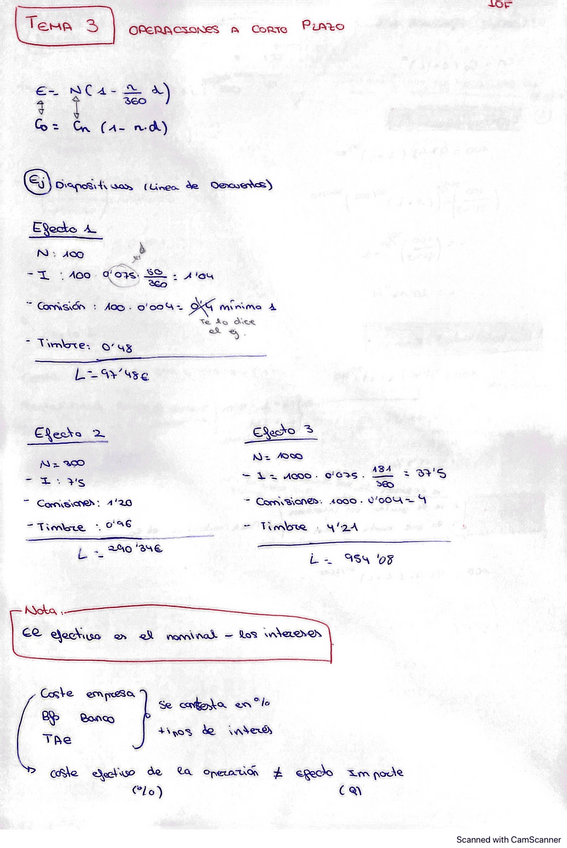 IOF
TEMA 3 OPERACIONES A CORTO PLAZO
E = N(1 - n/360 d)
C0 = Cn (1 - n d)
Ej Diapositivas (Linea de Descuentos)
Efecto 1
N: 100
d
- I : 100 · 0'075 · 50/360 = 1'04
- Comisión : 100 · 0'004 = 0'4 mínimo 1
Te lo dice
el ej.
- Timbre: 0'48
L = 97'48€
Efecto 2
N = 300
- I : 7'5
- Comisiones: 1'20
- Timbre : 0'96
L = 290'34€
Efecto 3
N = 1000
- I = 1000 · 0'075 · 181/360 = 37'5
- Comisiones: 1000 · 0'004 = 4
- Timbre : 4'21
L = 954'08
Nota.
el efectivo es el nominal - los intereses
Coste empresa
Bfo Banco
TAE
se contesta en %
tipos de interés
coste efectivo de la operación ≠ efecto Importe
(%)
Scanned with CamScanner